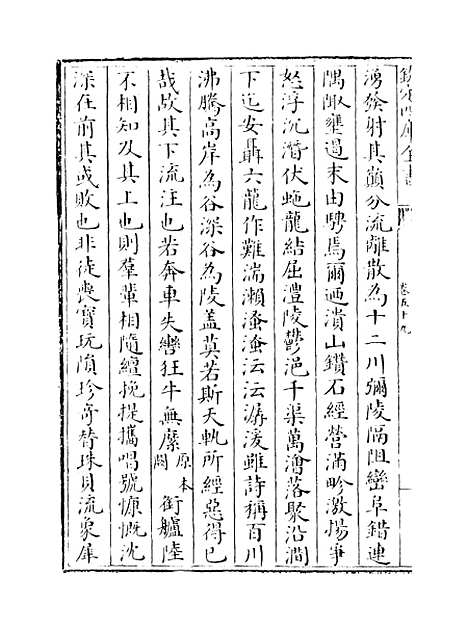 欽定四庫全書 卷五十九
湧發射其巔分流離散為十二川彌陵隔阻巒阜錯連
隅陬壅遏末由騁焉爾廼潰山鑽石經營滿畛激揚爭
怒浮沉潛伏蛇龍結屈澧陵鬱浥千渠萬澮落聚沿澗
下迄安聶六龍作難湍瀨沄沄潺湲雖詩稱百川
沸騰高岸為谷深谷為陵盖莫若斯天軌所經惡得已
哉故其下流注也若奔車失轡狂牛無縻原本闕銜艫陸
不相知及其上也則羣輩相隨纏挽提攜唱號慷慨沈
深在前其或敗也非徒喪寶玩隕珍奇替珠貝流象犀